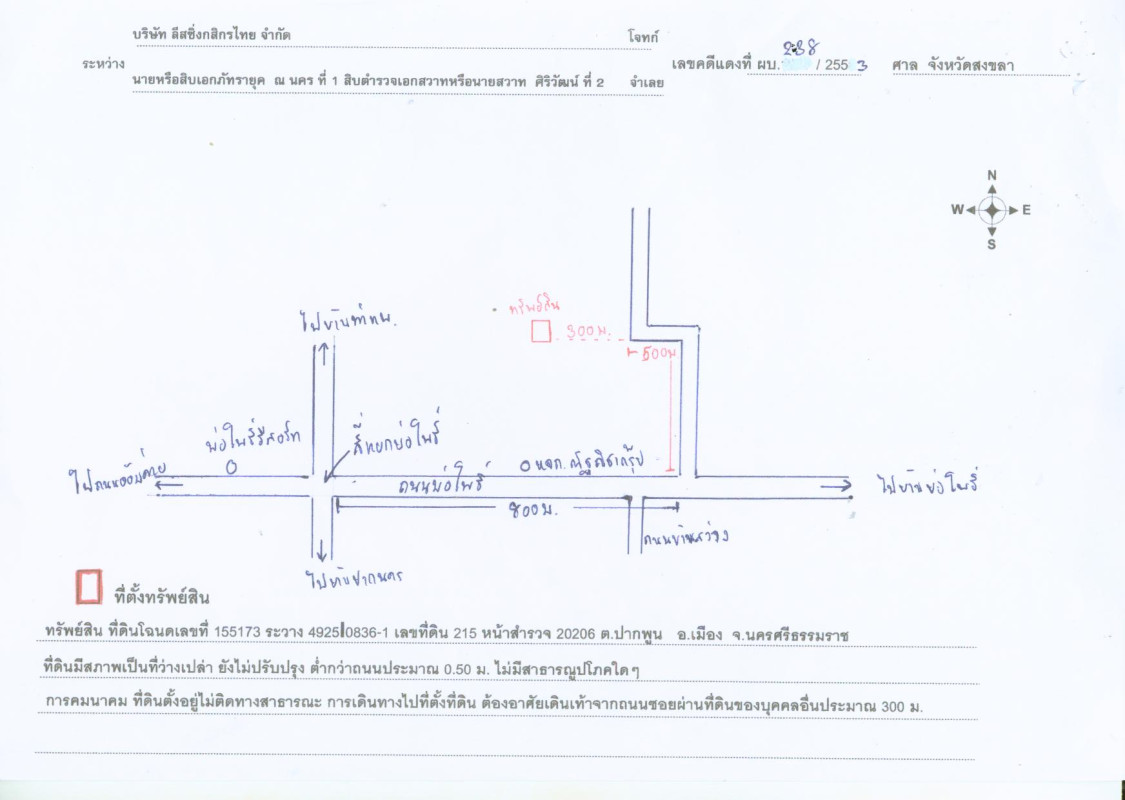 บริษัท ลีสซิ่งกสิกรไทย จำกัด โจทก์
ระหว่าง เลขคดีแดงที่ ผบ. 238 / 2553 ศาล จังหวัดสงขลา
นายหรือสิบเอกภัทรายุค ณ นคร ที่ 1 สิบตำรวจเอกสวาทหรือนายสวาท ศิริวัฒน์ ที่ 2 จำเลย
N
W E
S
ทรัพย์สิน
300 ม.
500ม
ไปบ้านท่าแพ.
บ่อโพธิ์รีสอร์ท
สี่แยกบ่อโพธิ์
ถนนบ่อโพธิ์
ไปบ้านบ่อโพธิ์
800 ม.
ไปบ้านปากนคร
ที่ตั้งทรัพย์สิน
ทรัพย์สิน ที่ดินโฉนดเลขที่ 155173 ระวาง 4925 0836-1 เลขที่ดิน 215 หน้าสำรวจ 20206 ต.ปากพูน อ.เมือง จ.นครศรีธรรมราช
ที่ดินมีสภาพเป็นที่ว่างเปล่า ยังไม่ปรับปรุง ต่ำกว่าถนนประมาณ 0.50 ม. ไม่มีสาธารณูปโภคใด ๆ
การคมนาคม ที่ดินตั้งอยู่ไม่ติดทางสาธารณะ การเดินทางไปที่ตั้งที่ดิน ต้องอาศัยเดินเท้าจากถนนซอยผ่านที่ดินของบุคคลอื่นประมาณ 300 ม.